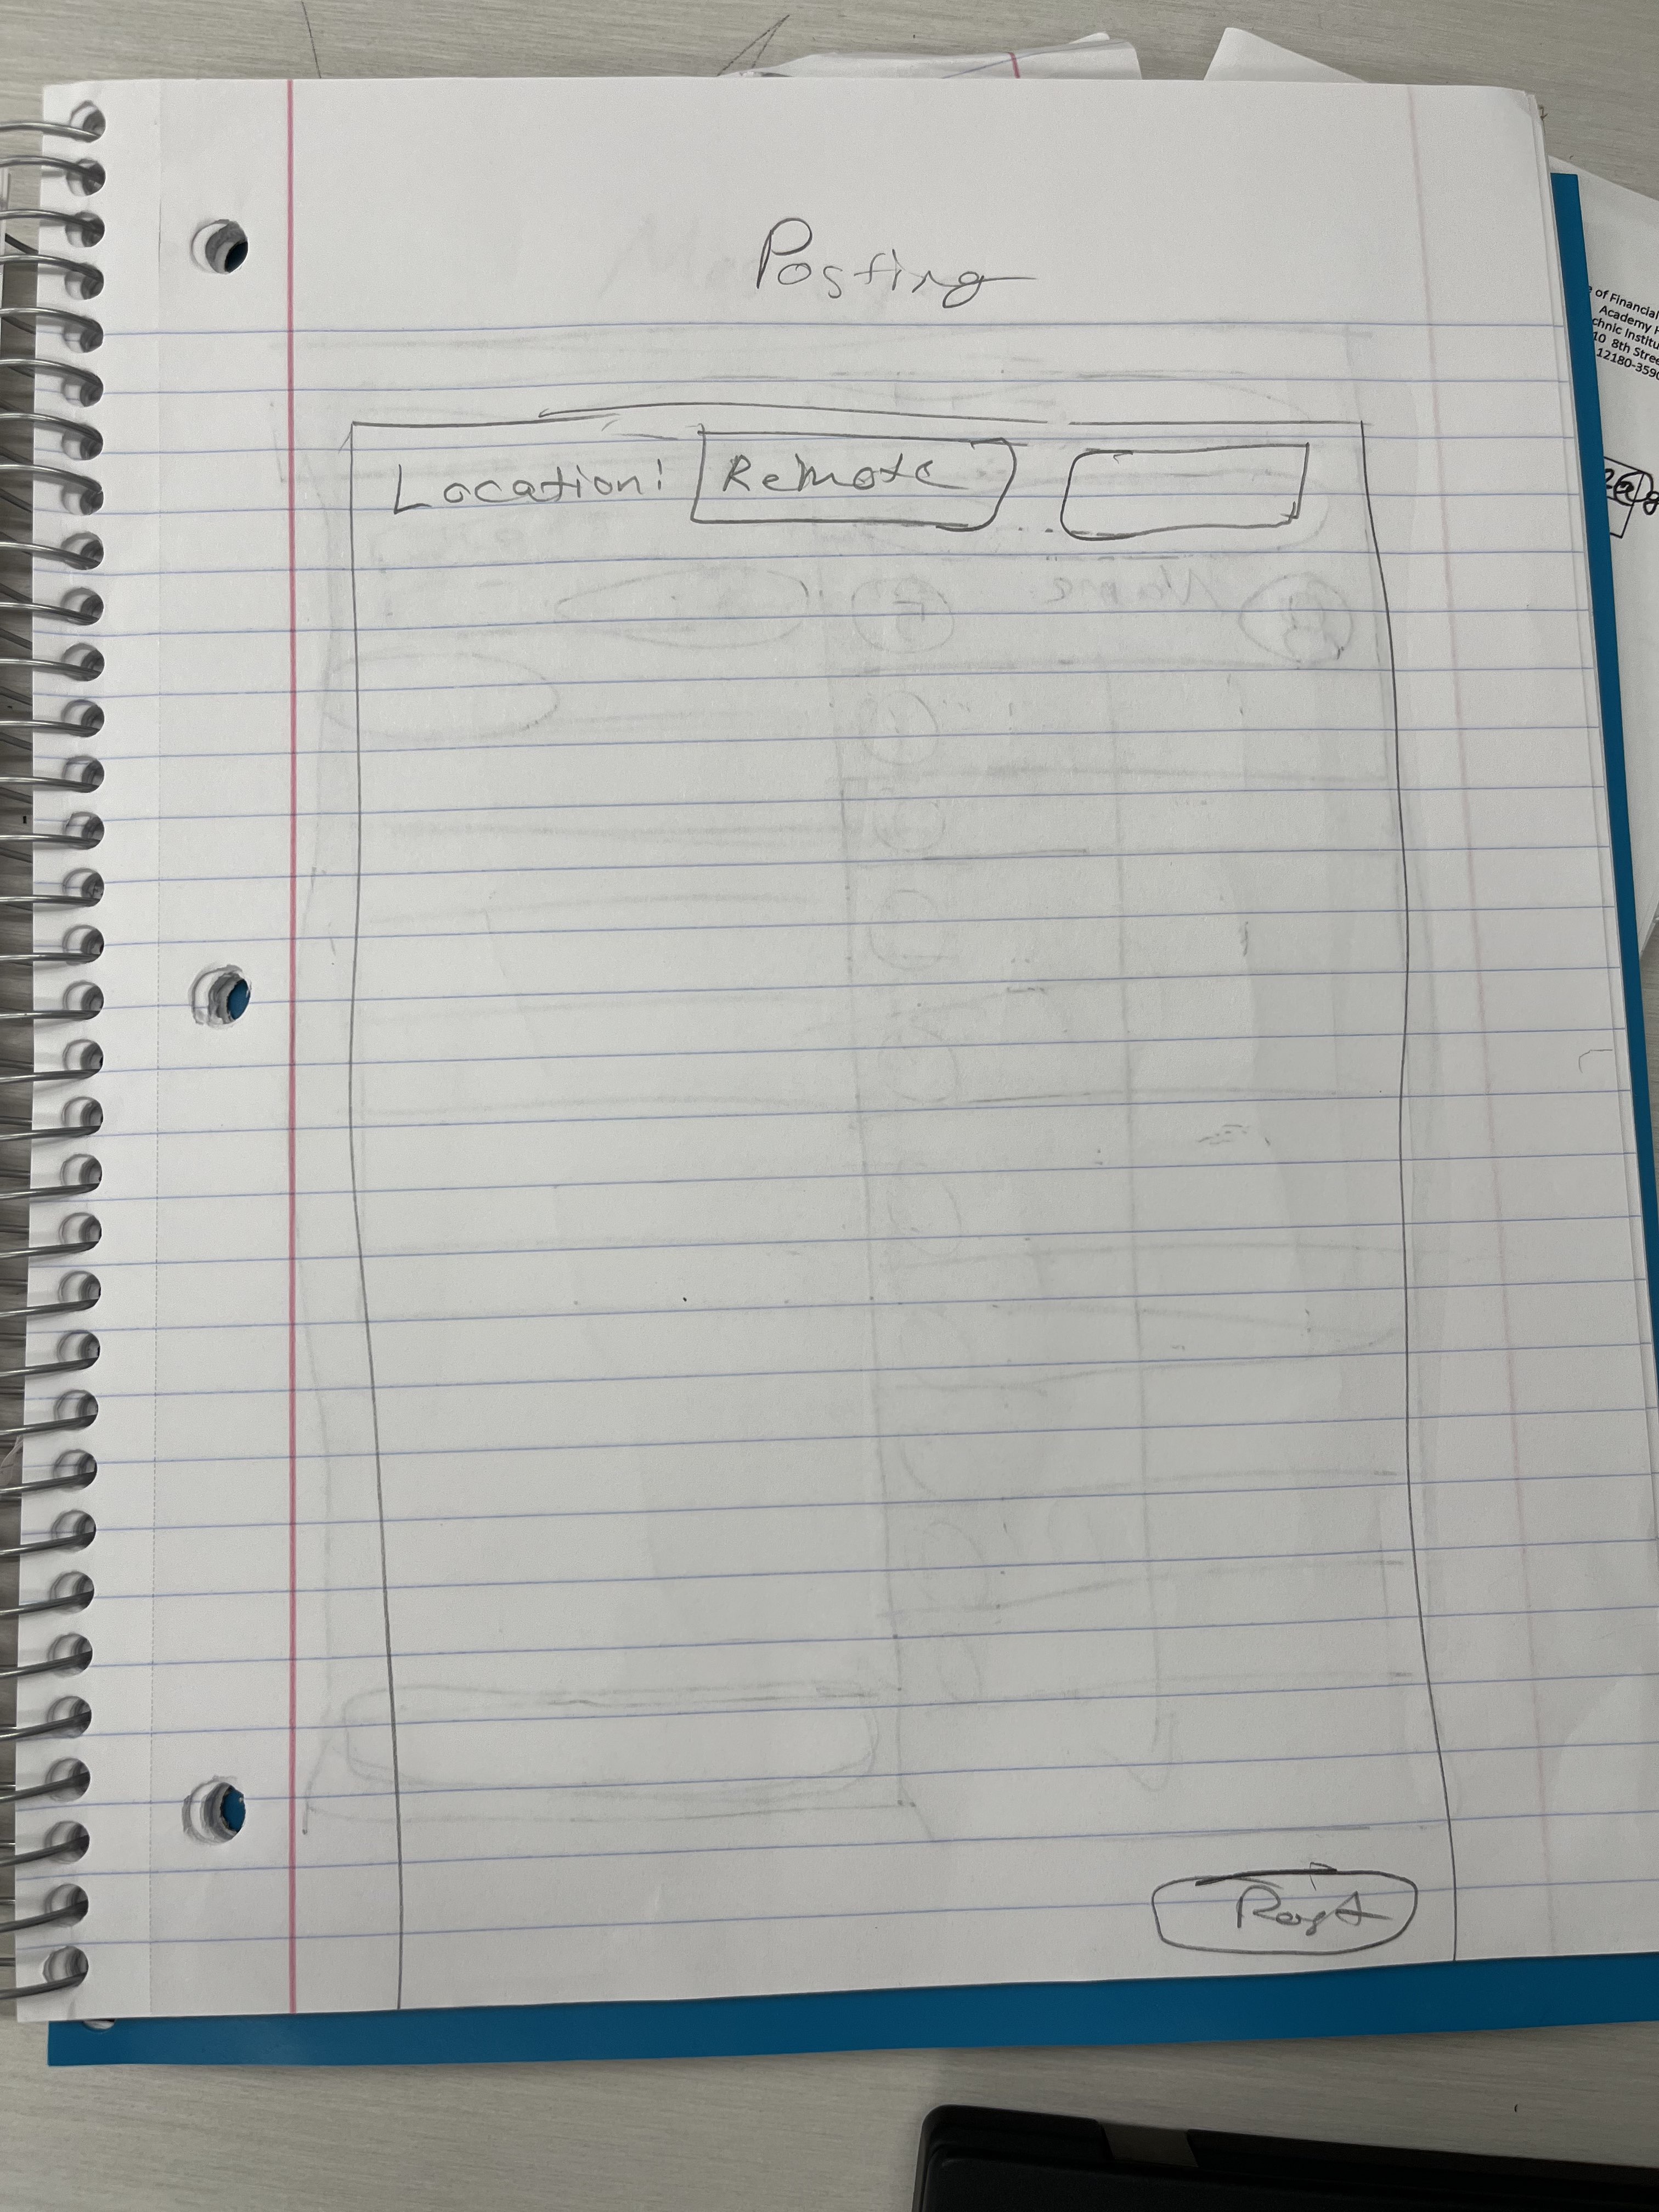 Posting
Location: Remote
Post
of Financial
Academy
chnic Institu
10 8th Stree
12180-3590
Name